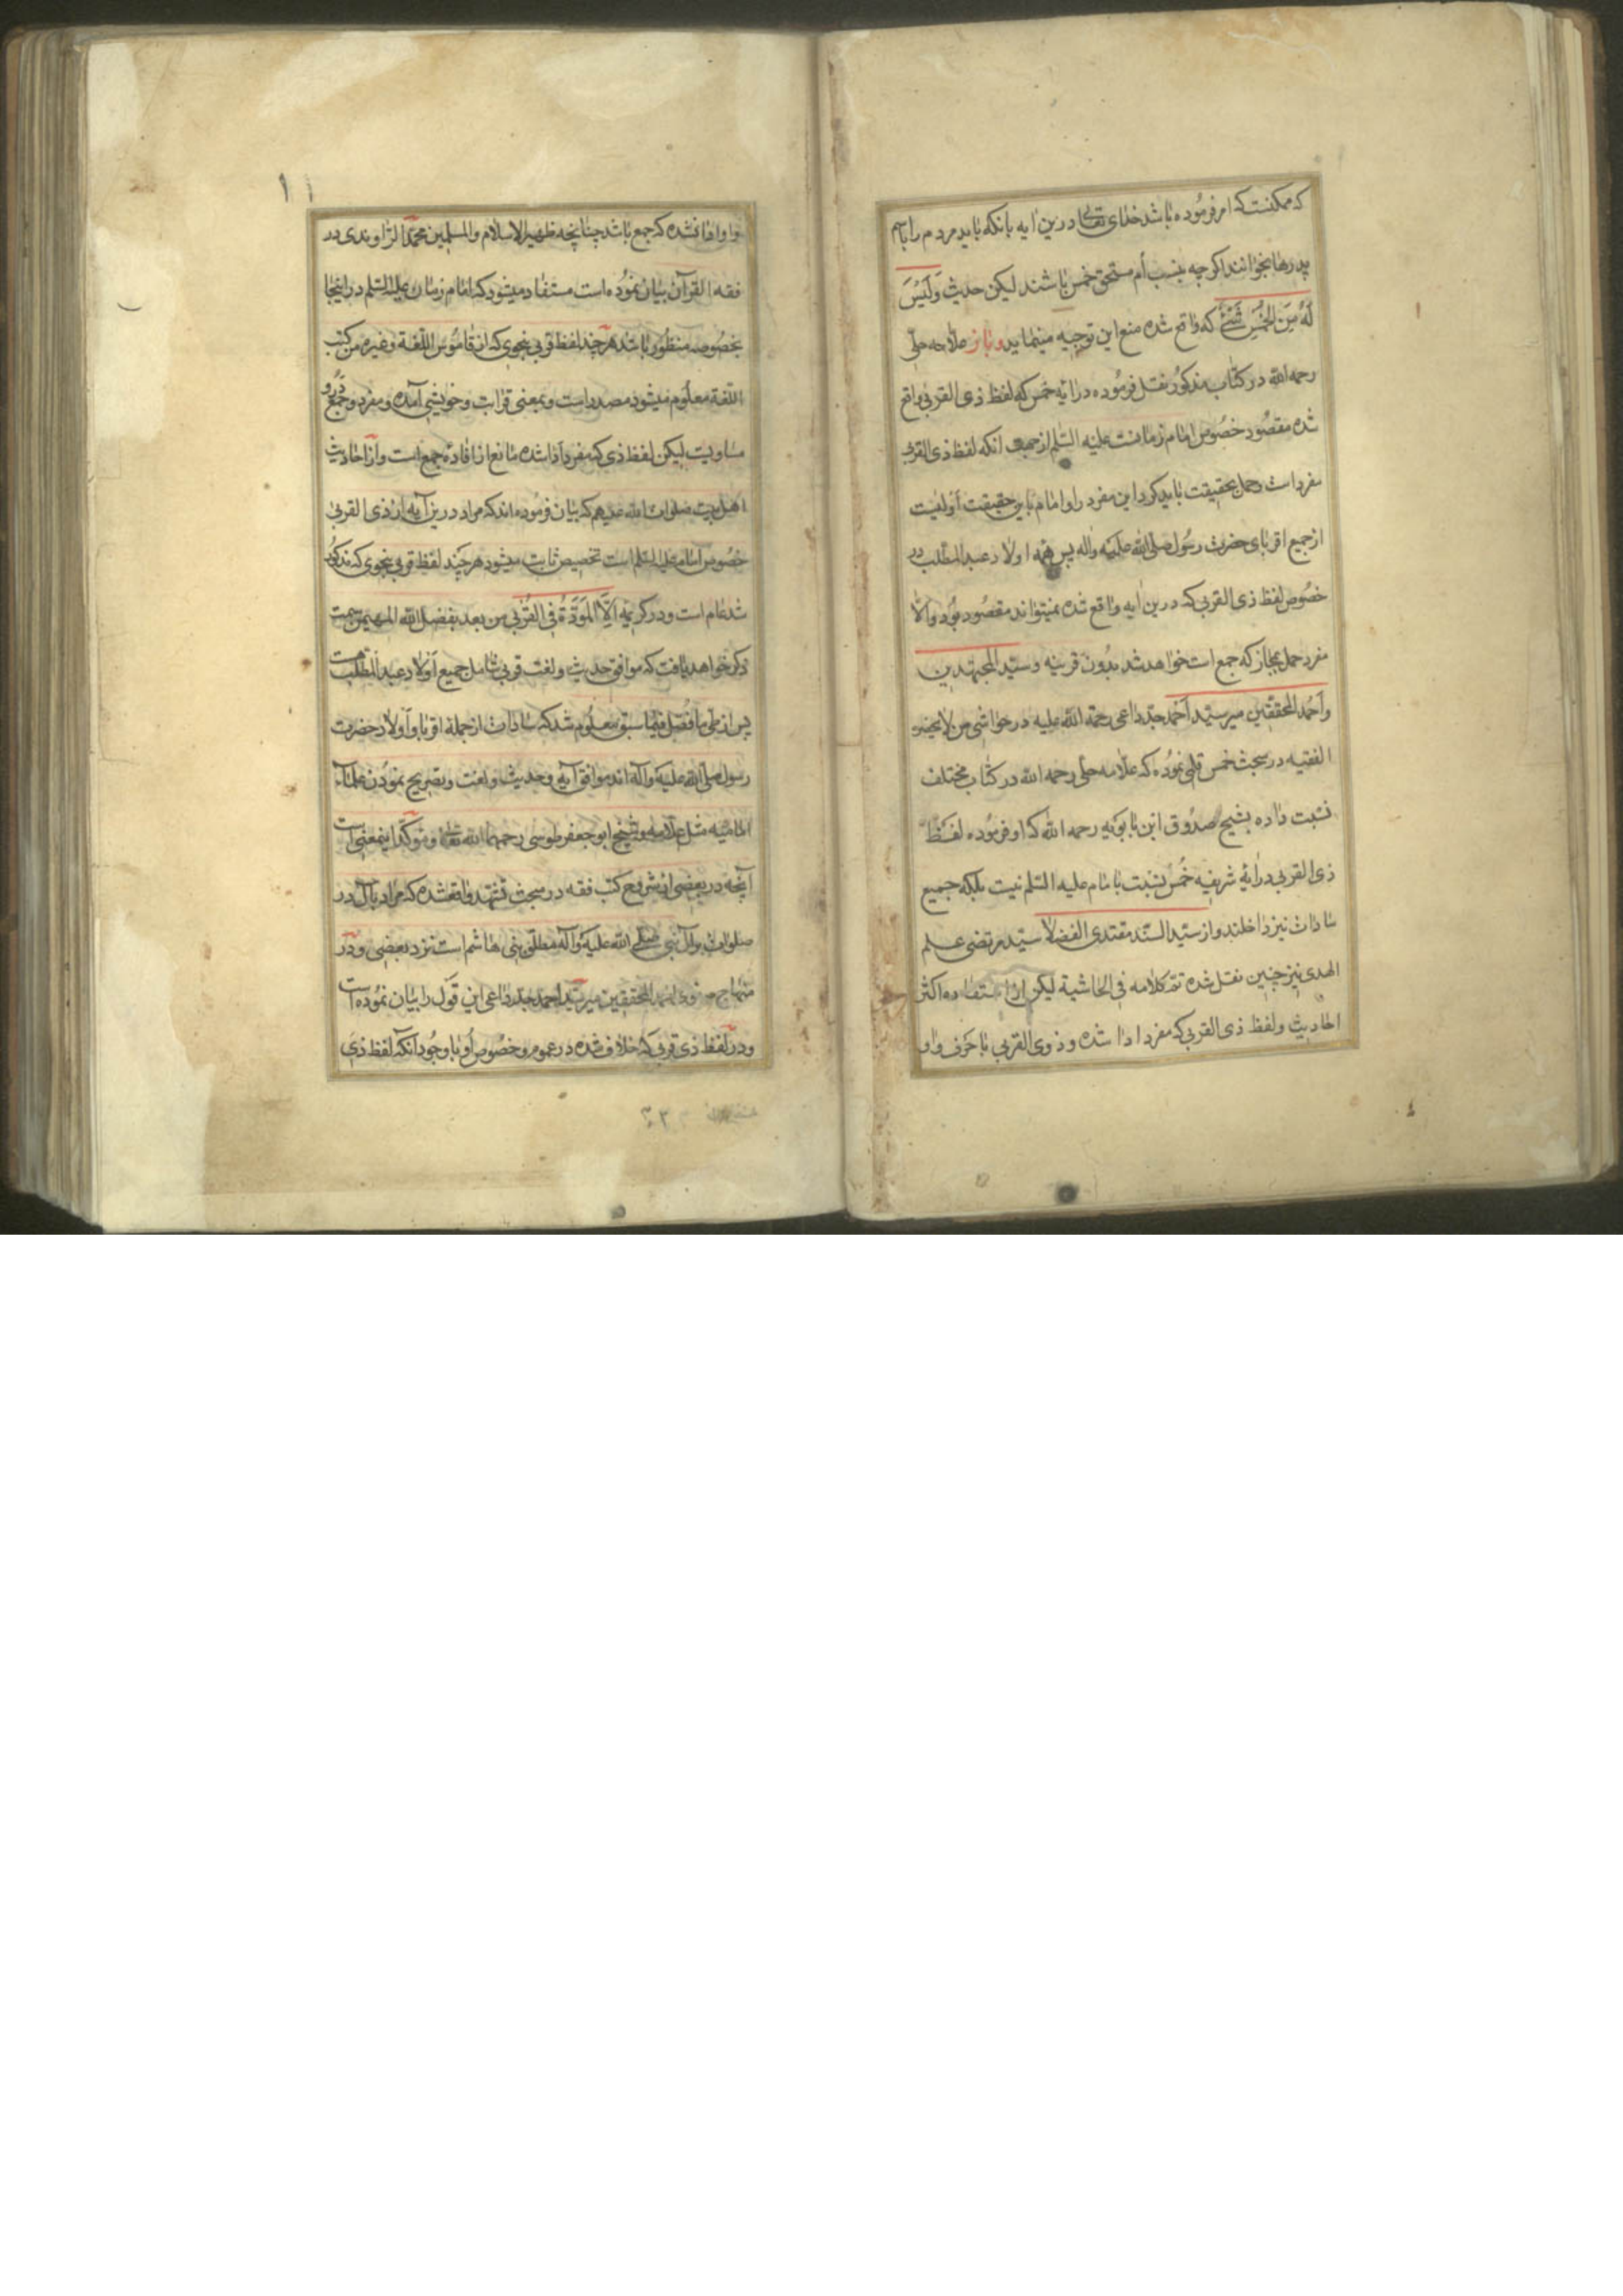 که ممکنست که امر فرموده باشد خدای تعالی درین ایه بانکه باید مردم را باسم
پدرها بخوانند اگرچه بنسب أم مستحق خمس باشند لیکن حدیث وَلَیْسَ
لَهُ مِنَ الخُمْسِ شَیْئٌ که واقع شده منع این توجیه مینماید و باز علامه حلی
رحمه الله در کتاب مذکور نقل فرموده در ایه خمس که لفظ ذی القربی واقع
شده مقصود خصوص امام زمانست علیه السلم از جهت انکه لفظ ذی القربی
مفرد است وحمل بحقیقت باید کرد این مفرد را و امام باین حقیقت أولیست
از جمیع اقربای حضرت رسول صلی الله علیه واله پس همه اولاد عبدالمطلب در
خصوص لفظ ذی القربی که درین ایه واقع شده نمیتواند مقصود بود والا
مفرد حمل بمجاز که جمع است خواهد شد بدون قرینه وسید المجتهدین
واحمد المحققین میر سید احمد جد داعی رحمة الله علیه در حواشی من لا یحضر
الفقیه در مبحث خمس قلمی نموده که علامه حلی رحمه الله در کتاب مختلف
نسبت داده بشیخ صدوق ابن بابویه رحمه الله که او فرموده لفظ
ذی القربی در ایه شریفه خمس نسبت بامام علیه السلم نیست بلکه جمیع
سادات نیز داخلند واز سید السند مقتدی الفضلا سید مرتضی علم
الهدی نیز چنین نقل شده تم کلامه فی الحاشیة لیکن از استفاده اکثر
احادیث ولفظ ذی القربی که مفرد ادا شده وذوی القربی با حرف واو
۱۱
با واو ادا نشده که جمع باشد چنانچه ظهیر الاسلام والمسلمین محمد الراوندی در
فقه القرآن بیان نموده است مستفاد میشود که امام زمان علیه السلم در اینجا
بخصوصه منظور باشد هر چند لفظ قربی بنحوی که از قاموس اللغة وغیره من کتب
اللغة معلوم میشود مصدر است وبمعنی قرابت وخویشی آمده ومفرد وجمع درو
مساویست لیکن لفظ ذی که مفرد ادا شده مانع از افادهٔ جمع است واز احادیث
اهل بیت صلوات الله علیهم که بیان فرموده اند که مراد درین آیه از ذی القربی
خصوص امام علیه السلم است تخصیص ثابت میشود هر چند لفظ قربی بنحوی که مذکور
شد عام است ودر کریمه اِلّا المَوَدَّةَ فِی القُرْبی من بعد بفضل الله المهیمن سمت
ذکر خواهد یافت که موافق حدیث ولغت قربی شامل جمیع اولاد عبدالمطلب هست
پس از طی ما فصل فیما سبق معلوم شد که سادات از جمله اقربا واولاد حضرت
رسول صلی الله علیه وآله اند موافق آیه وحدیث ولغت وتصریح نمودن علماء
امامیه مثل علامه وشیخ ابو جعفر طوسی رحمهما الله تعالی ومؤکد اینمعنی است
آنچه در بعضی از شروح کتب فقه در مبحث تشهد واقعشده که مراد بآل در
صلوات بر آل نبی صلی الله علیه وآله مطلق بنی هاشم است نزد بعضی ودر
منهاج احمد المحققین میر سید احمد جد داعی این قول را بیان نموده است
ودر لفظ ذی قربی که خلاف شده در عموم وخصوص او با وجود آنکه لفظ ذی